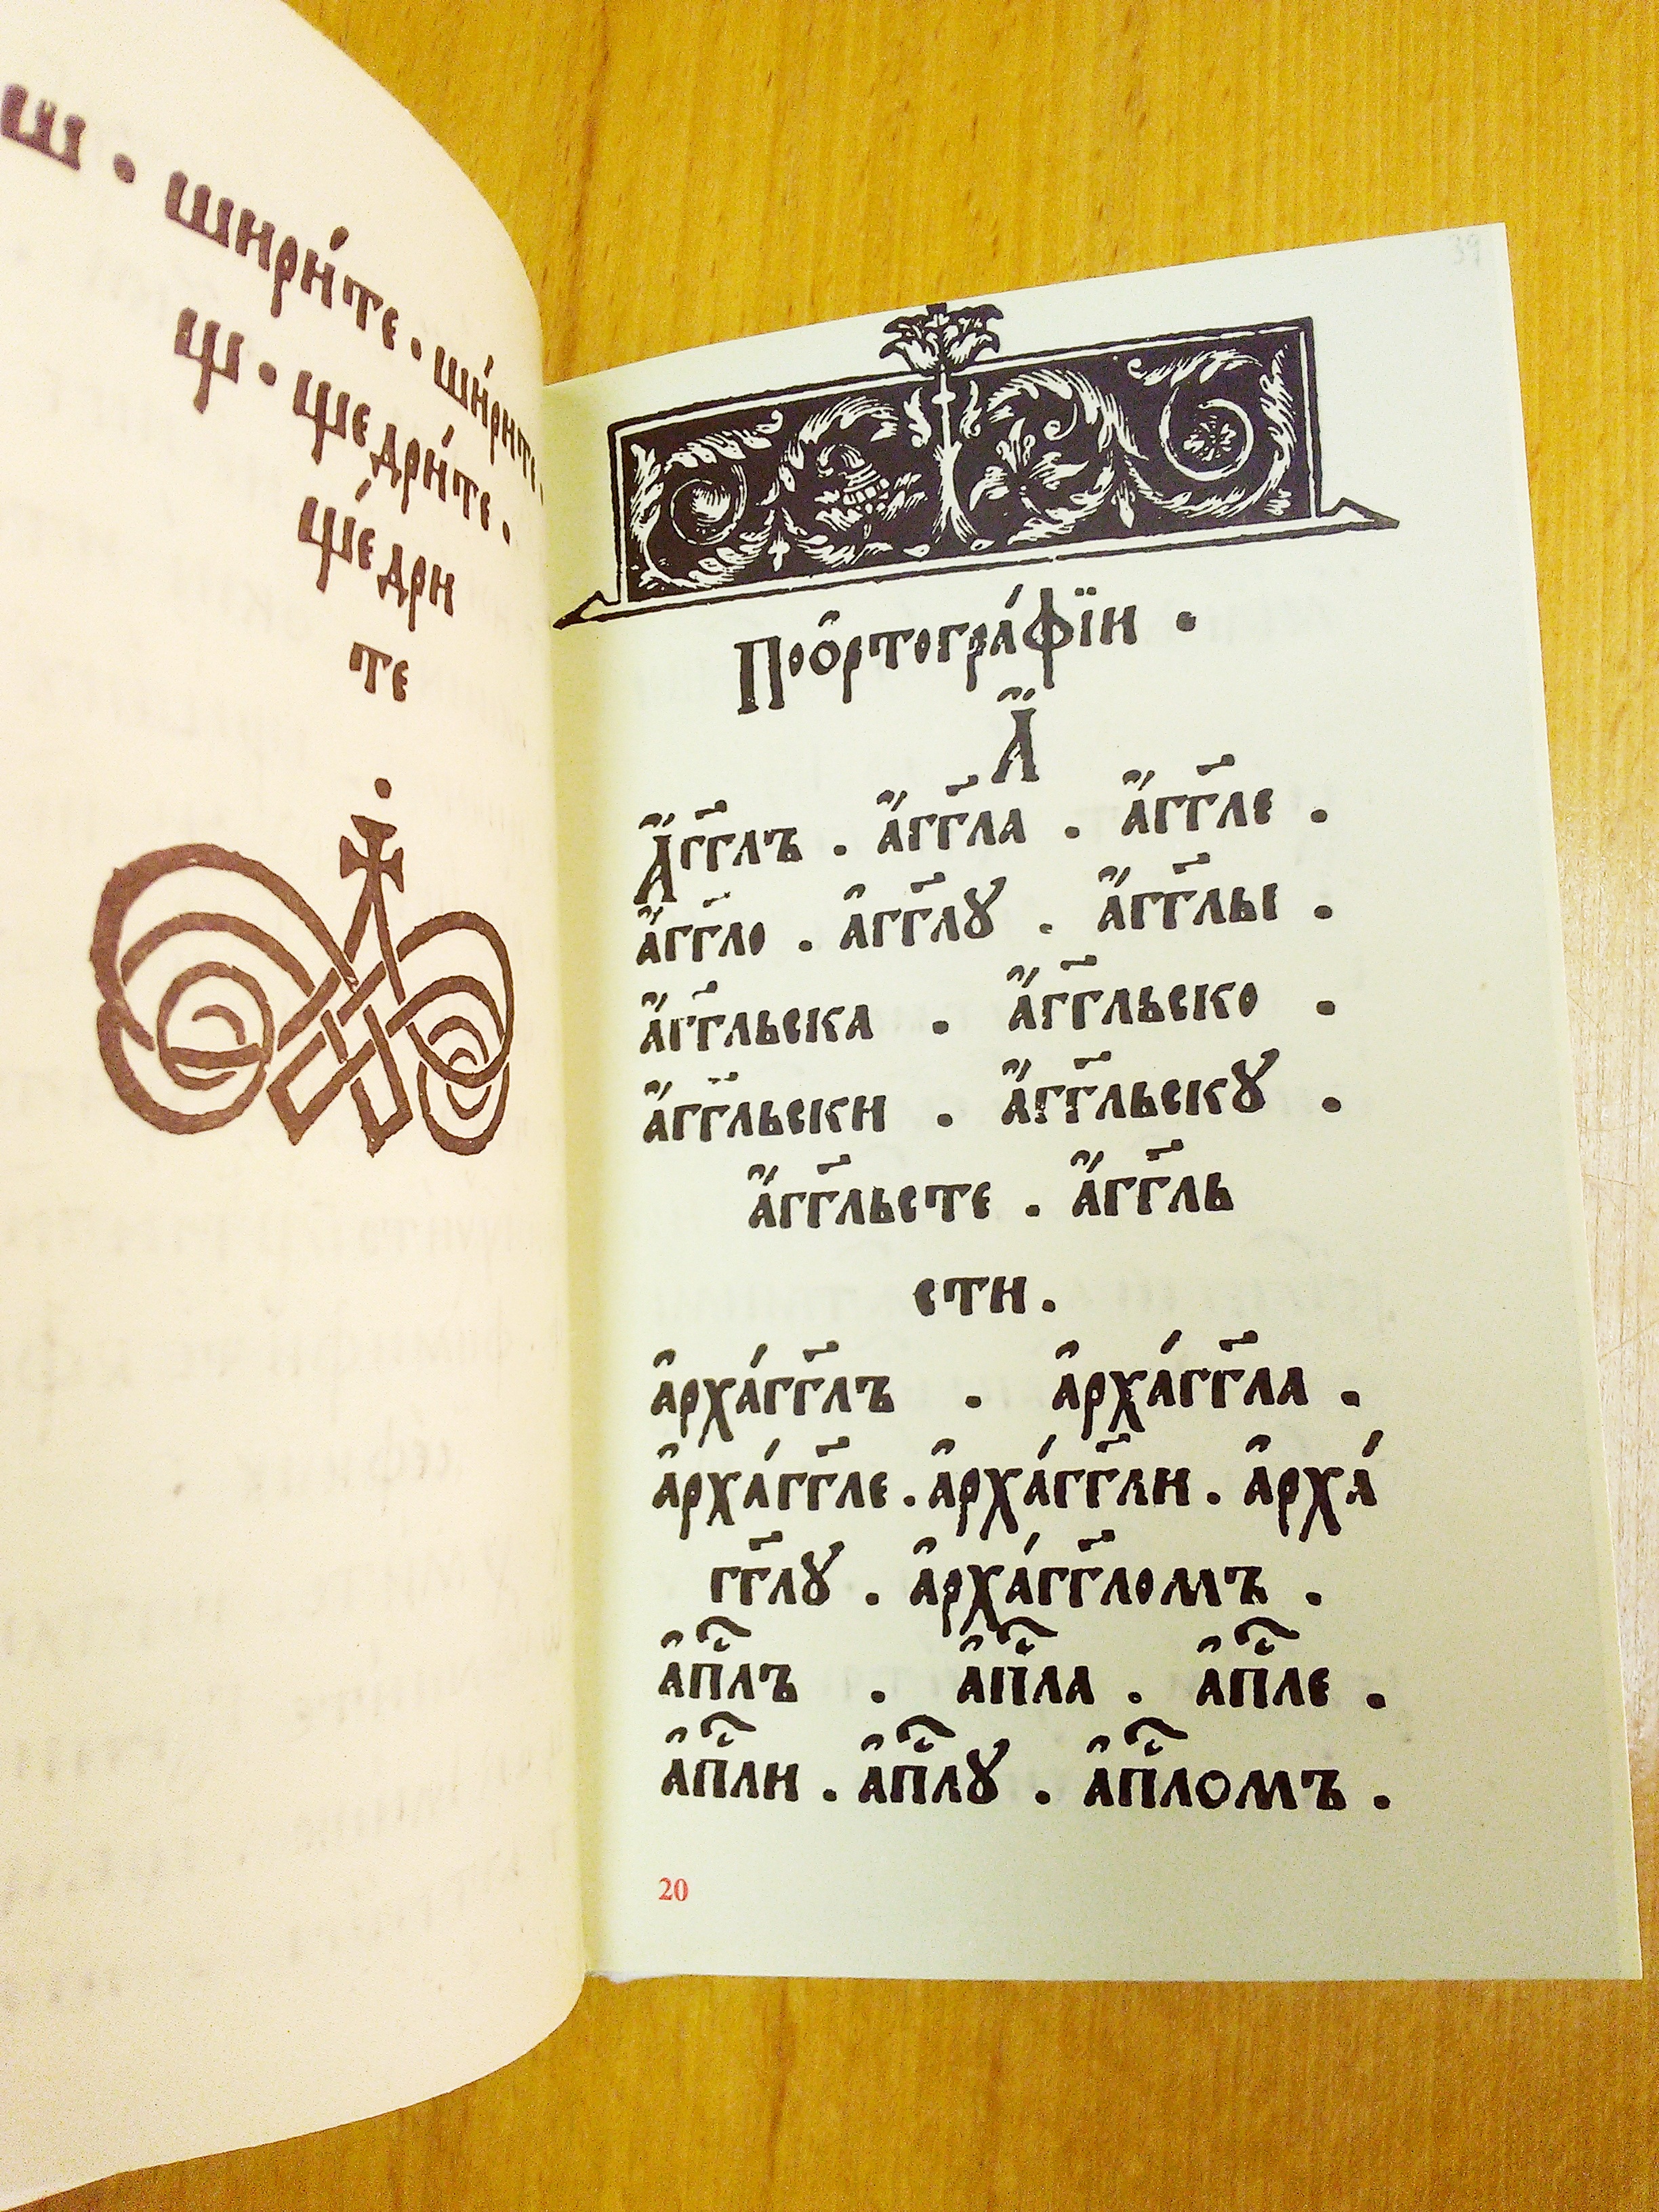 Ш · шири́те · ши́рите ·
Щ · щедри́те ·
ще́дри
те
.
39
По ѻ҆ртогра́фїи ·
А҆́
А҆́гг҃лъ . а҆́гг҃ла . а҆́гг҃ле .
а҆́гг҃ло . а҆гг҃лꙋ . а҆́гг҃лы .
а҆́гг҃льска . а҆́гг҃льско .
а҆́гг҃льски . а҆́гг҃льскꙋ .
а҆́гг҃льсте . а҆́гг҃ль
сти .
а҆рха́гг҃лъ . а҆рха́гг҃ла .
а҆рха́гг҃ле . а҆рха́гг҃ли . а҆рха́
гг҃лꙋ . а҆рха́гг҃ломъ .
а҆пⷭ҇лъ . а҆пⷭ҇ла . а҆пⷭ҇ле .
а҆пⷭ҇ли . а҆пⷭ҇лꙋ . а҆пⷭ҇ломъ .
20